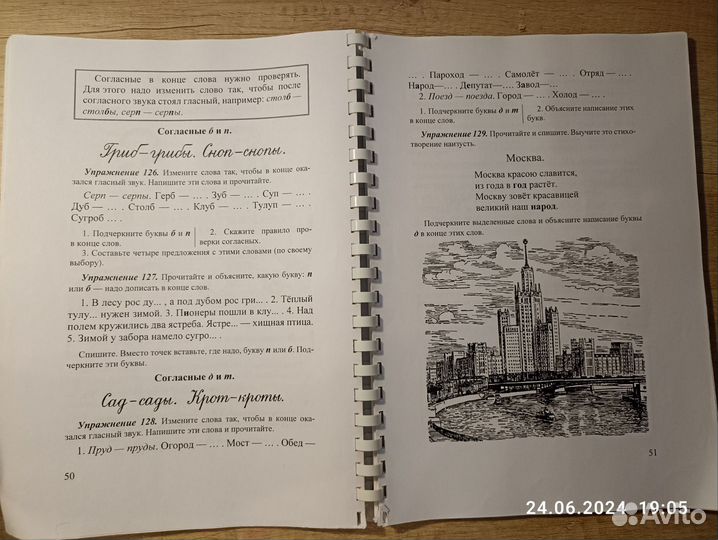 Согласные в конце слова нужно проверять.
Для этого надо изменить слово так, чтобы после
согласного звука стоял гласный, например: столб –
столбы, серп – серпы.
Согласные б и п.
Гриб–грибы. Сноп–снопы.
Упражнение 126. Измените слова так, чтобы в конце ока-
зался гласный звук. Напишите эти слова и прочитайте.
Серп — серпы. Герб — ... . Зуб — ... . Суп — ... .
Дуб — ... . Столб — ... . Клуб — ... . Тулуп — ... .
Сугроб ... .
1. Подчеркните буквы б и п
в конце слов.
2. Скажите правило про-
верки согласных.
3. Составьте четыре предложения с этими словами (по своему
выбору).
Упражнение 127. Прочитайте и объясните, какую букву: п
или б — надо дописать в конце слов.
1. В лесу рос ду... , а под дубом рос гри... . 2. Тёплый
тулу... нужен зимой. 3. Пионеры пошли в клу... . 4. Над
полем кружились два ястреба. Ястре... — хищная птица.
5. Зимой у забора намело сугро... .
Спишите. Вместо точек вставьте, где надо, букву п или б. Под-
черкните эти буквы.
Согласные д и т.
Сад–сады. Крот–кроты.
Упражнение 128. Измените слова так, чтобы в конце ока-
зался гласный звук. Напишите эти слова и прочитайте.
1. Пруд — пруды. Огород — ... . Мост — ... . Обед —
50
... . Пароход — ... . Самолёт — ... . Отряд — ... .
Народ— ... . Депутат—.... Завод—...
2. Поезд — поезда. Город — ... . Холод — ... .
1. Подчеркните буквы д и т
в конце слов.
2. Объясните написание этих
букв.
Упражнение 129. Прочитайте и спишите. Выучите это стихо-
творение наизусть.
Москва.
Москва красою славится,
из года в год растёт.
Москву зовёт красавицей
великий наш народ.
Подчеркните выделенные слова и объясните написание буквы
д в конце этих слов.
51
24.06.2024 19:05
Avito